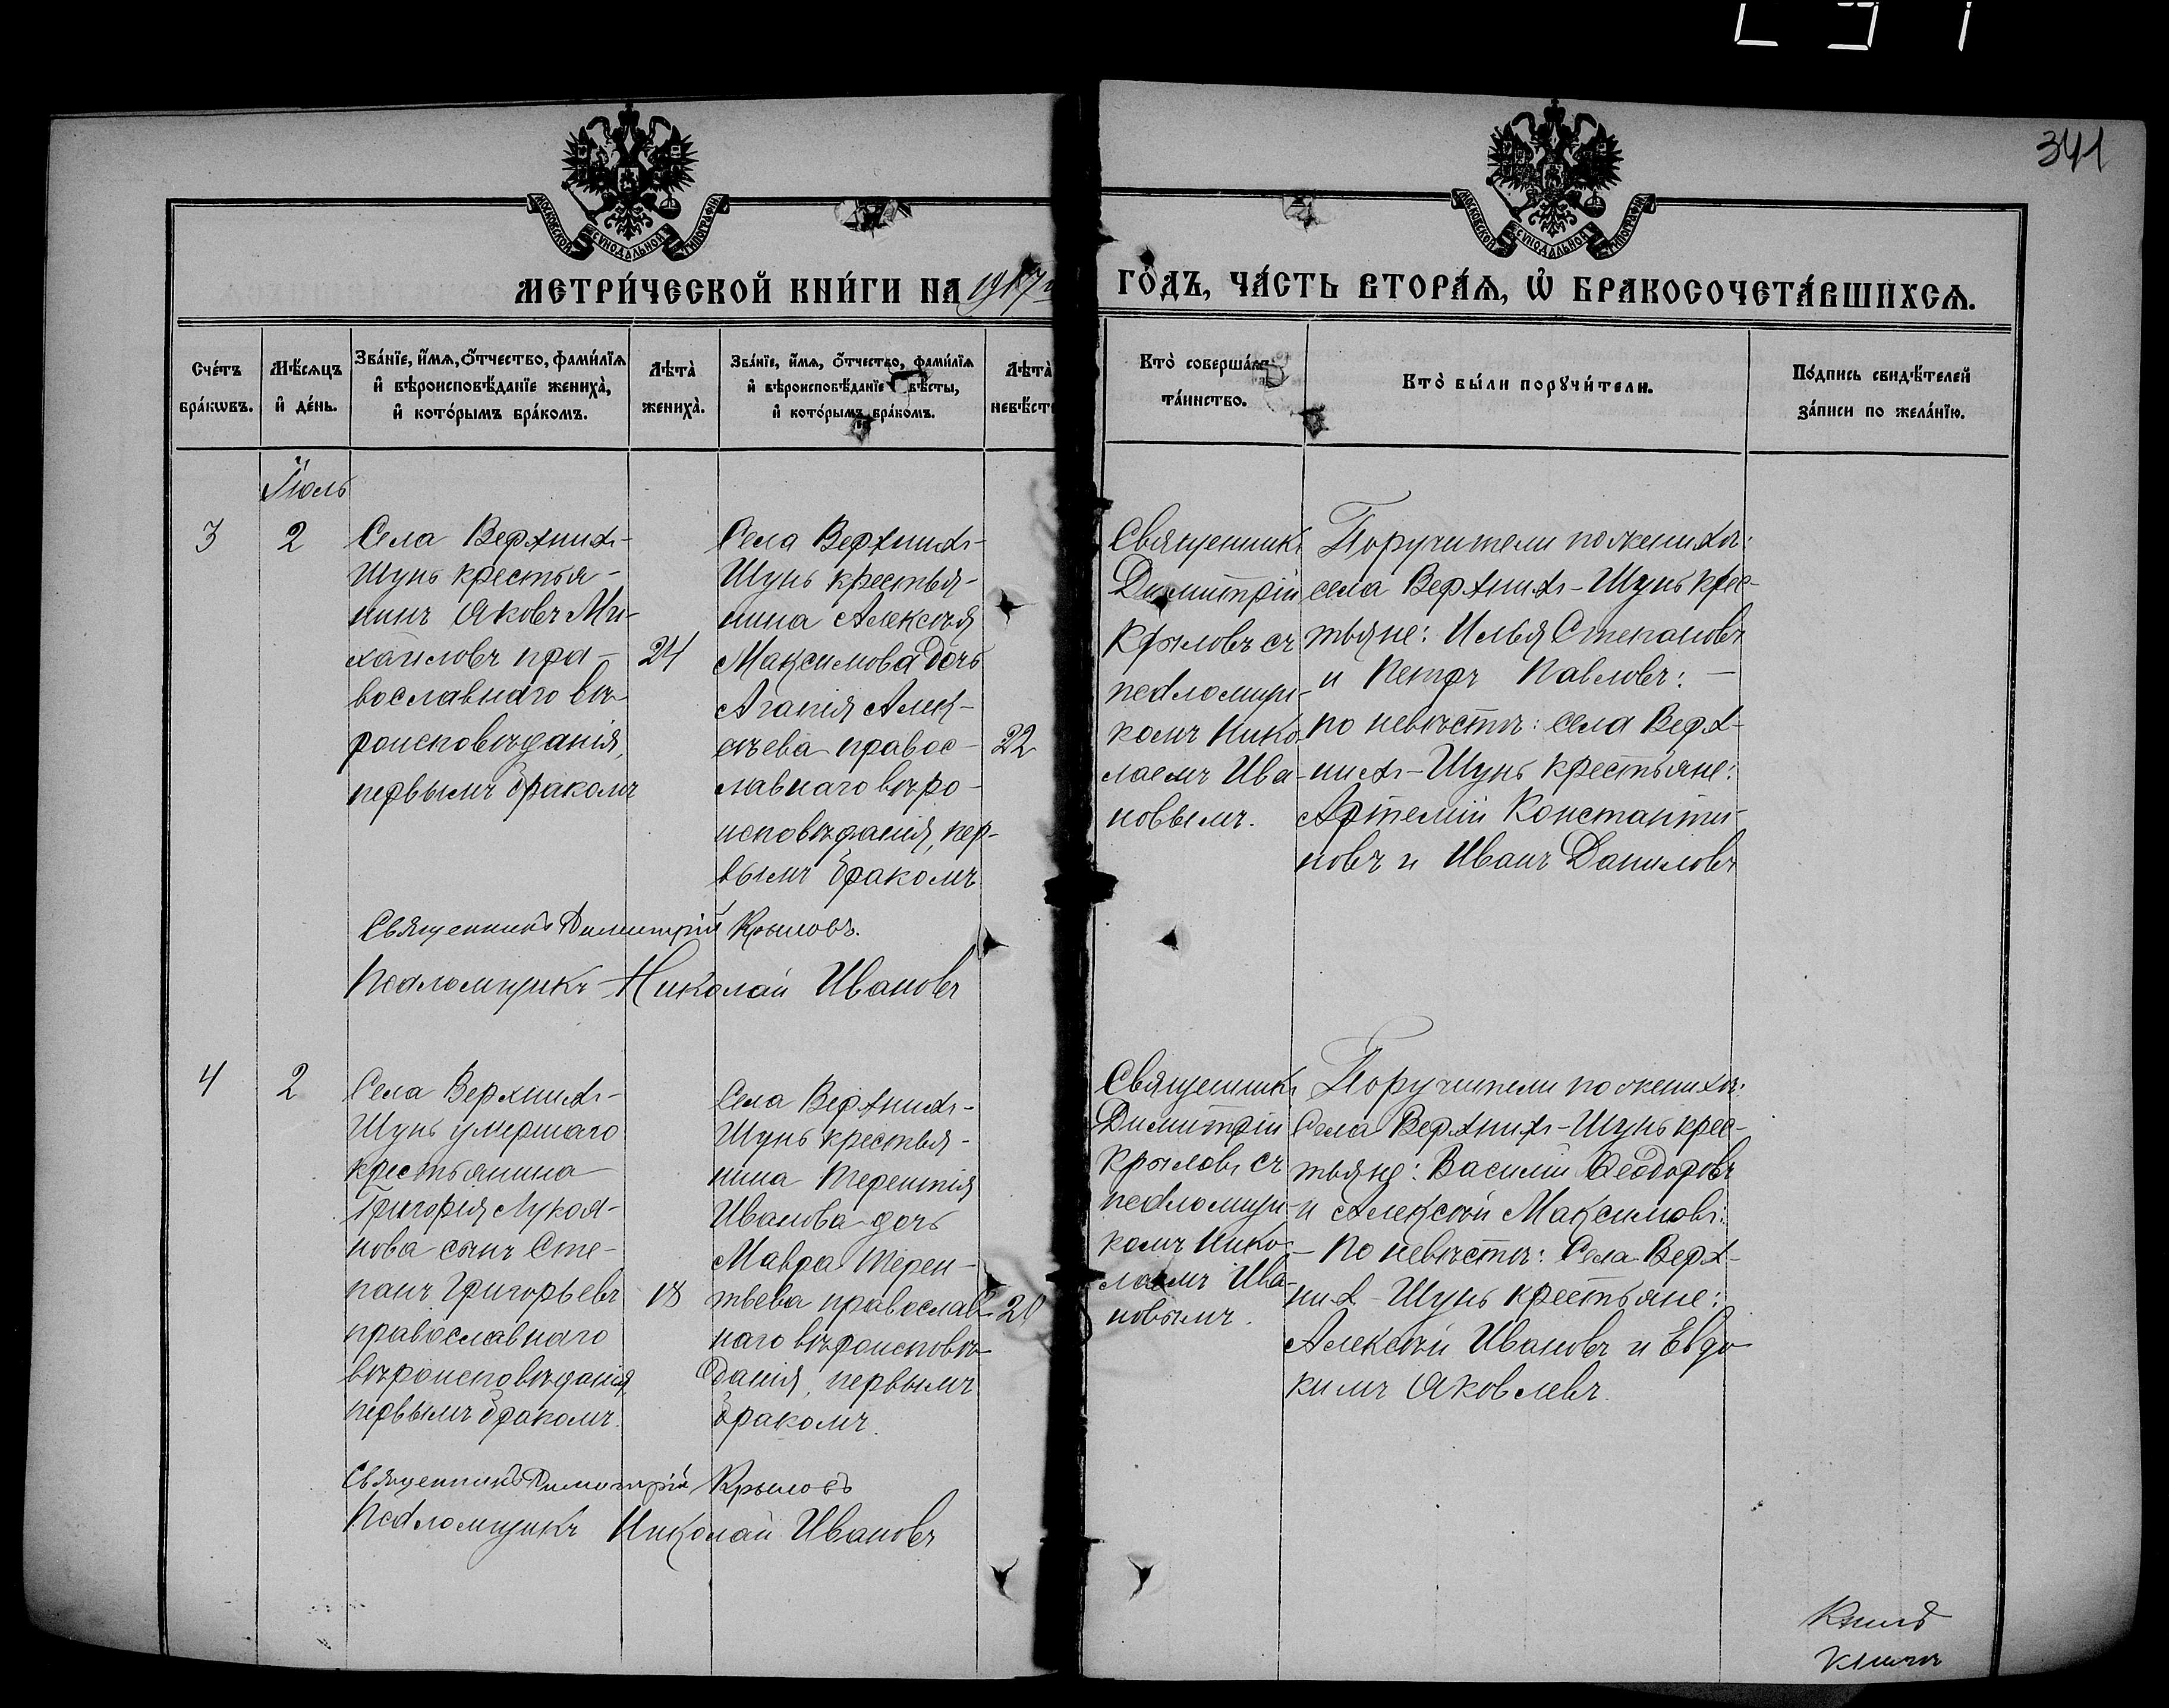 341
МОСКОВСКОЙ СѴНОДАЛЬНОЙ ТИПОГРАФІИ
МОСКОВСКОЙ СѴНОДАЛЬНОЙ ТИПОГРАФІИ
МЕТРИ́ЧЕСКОЙ КНИ́ГИ НА 1917 ГО́ДЪ, ЧА́СТЬ ВТОРА́Ѧ, Ѡ҆ БРАКОСОЧЕТА́ВШИХСѦ.
Сче́тъ бра́кѡвъ.
Мѣ́сѧцъ и҆ де́нь.
Зва́нїе, и҆́мѧ, ѻ҆́тчество, фами́лїѧ и҆ вѣроисповѣ́данїе жениха̀, и҆ кото́рымъ бра́комъ.
Лѣта̀ жениха̀.
Зва́нїе, и҆́мѧ, ѻ҆́тчество, фами́лїѧ и҆ вѣроисповѣ́данїе вѣсты, и҆ кото́рымъ бра́комъ.
Лѣта̀ невѣ́сты
Кто̀ соверша́лъ та́инство.
Кто̀ бы́ли порꙋчи́тели.
По́дпись свидѣ́телей за́писи по жела́нїю.
Іюль
3
2
Села Верхнихъ-
Шунь крестья-
нинъ Яковъ Ми-
хайловъ пра-
вославнаго вѣ-
роисповѣданія,
первымъ бракомъ
24
Села Верхнихъ-
Шунь крестья-
нина Алексѣя
Максимова дочь
Агапія Алек-
сѣева правос-
лавнаго вѣро-
исповѣданія, пер-
вымъ бракомъ
22
Священникъ
Димитрій
Крыловъ съ
псаломщи-
комъ Нико-
лаемъ Ива-
новымъ.
Поручители по женихѣ:
села Верхнихъ-Шунь крес-
тьяне: Илья Степановъ
и Петръ Павловъ: —
по невѣстѣ: села Верх-
нихъ-Шунь крестьяне:
Артемій Константи-
новъ и Иванъ Даниловъ
Священникъ Димитрій Крыловъ.
Псаломщикъ Николай Ивановъ
4
2
Села Верхнихъ-
Шунь умершаго
крестьянина
Григорія Лукоя-
нова сынъ Сте-
панъ Григорьевъ
православнаго
вѣроисповѣданія
первымъ бракомъ.
18
Села Верхнихъ-
Шунь крестья-
нина Терентія
Иванова дочь
Мавра Терен-
тьева православ-
наго вѣроисповѣ-
данія, первымъ
бракомъ.
Священникъ
Димитрій
Крыловъ съ
псаломщи-
комъ Нико-
лаемъ Ива-
новымъ.
Поручители по женихѣ:
Села Верхнихъ-Шунь крес-
тьяне: Василій Ѳеодоровъ
и Алексѣй Максимовъ:
— По невѣстѣ: Села Верх-
них-Шунь крестьяне:
Алексѣй Ивановъ и Евдо-
кимъ Яковлевъ.
Священникъ Димитрій Крыловъ
Псаломщикъ Николай Ивановъ